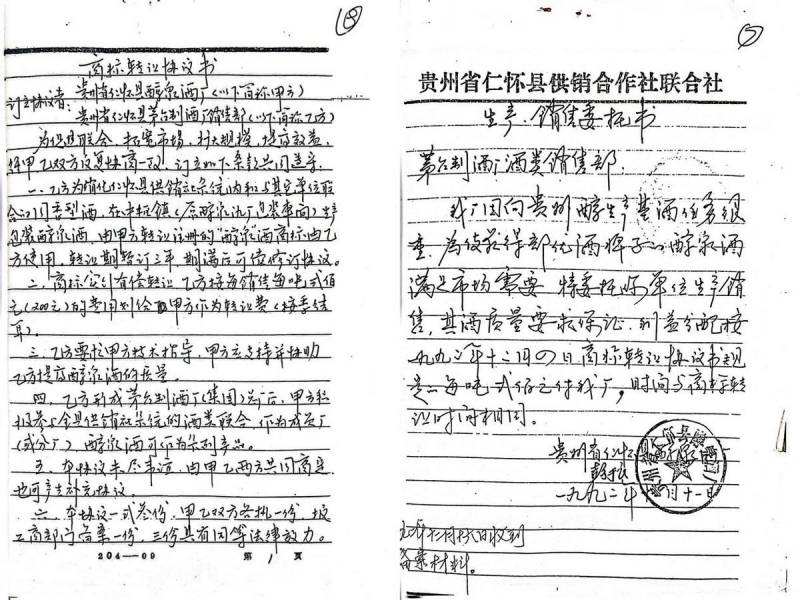 18
商标转让协议书
订立协议者：贵州省仁怀县醇泉酒厂（以下简称甲方）
贵州省仁怀县茅台制酒厂销售部（以下简称乙方）
为促进联合、拓宽市场、扩大规模、提高效益，
经甲乙双方反复协商一致，订立如下条款共同遵守。
一、乙方为简化仁怀县供销社系统内和与其它单位联
合的同香型酒，在 包装醇泉酒，由甲方转让注册的“醇泉”酒商标由乙
方使用，转让期暂订三年，期满后可修订协议。
二、商标实行有偿转让，乙方按每销售每吨贰佰
元（200元）的费用划给甲方作为转让费（按季结
算）。
三、乙方要求甲方技术指导，甲方应支持并协助
乙方提高醇泉酒的质量。
四、乙方形成茅台制酒厂（集团）公司后，甲方积
极参与全县供销社系统的酒类联合，作为成员厂
（或分厂），醇泉酒可作为系列产品。
五、本协议未尽事宜，由甲乙两方共同商定，
也可产生补充协议。
六、本协议一式叁份，甲乙双方各执一份，报
工商部门备案一份，三份具有同等法律效力。
204—09 第 1 页
贵州省仁怀县供销合作社联合社
生产、销售委托书
茅台制酒厂酒类销售部：
我厂因向贵州醇生产基酒任务很
重，为使获得部优酒牌子的醇泉酒
满足市场需要，特委托你单位生产销
售，其酒质量要求保证，利益分配按
一九九二年十二月四日商标转让协议书规
定：每吨贰佰元付我厂，时间与商标转
让时间相同。
贵州省仁怀
一九九二年 月十一日
收到
备案材料。